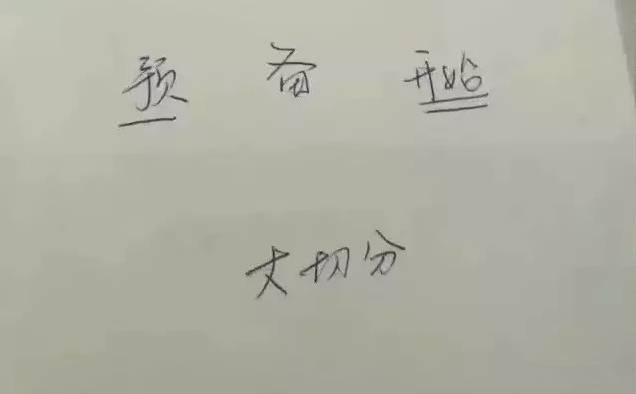 预 备 开始
大切分